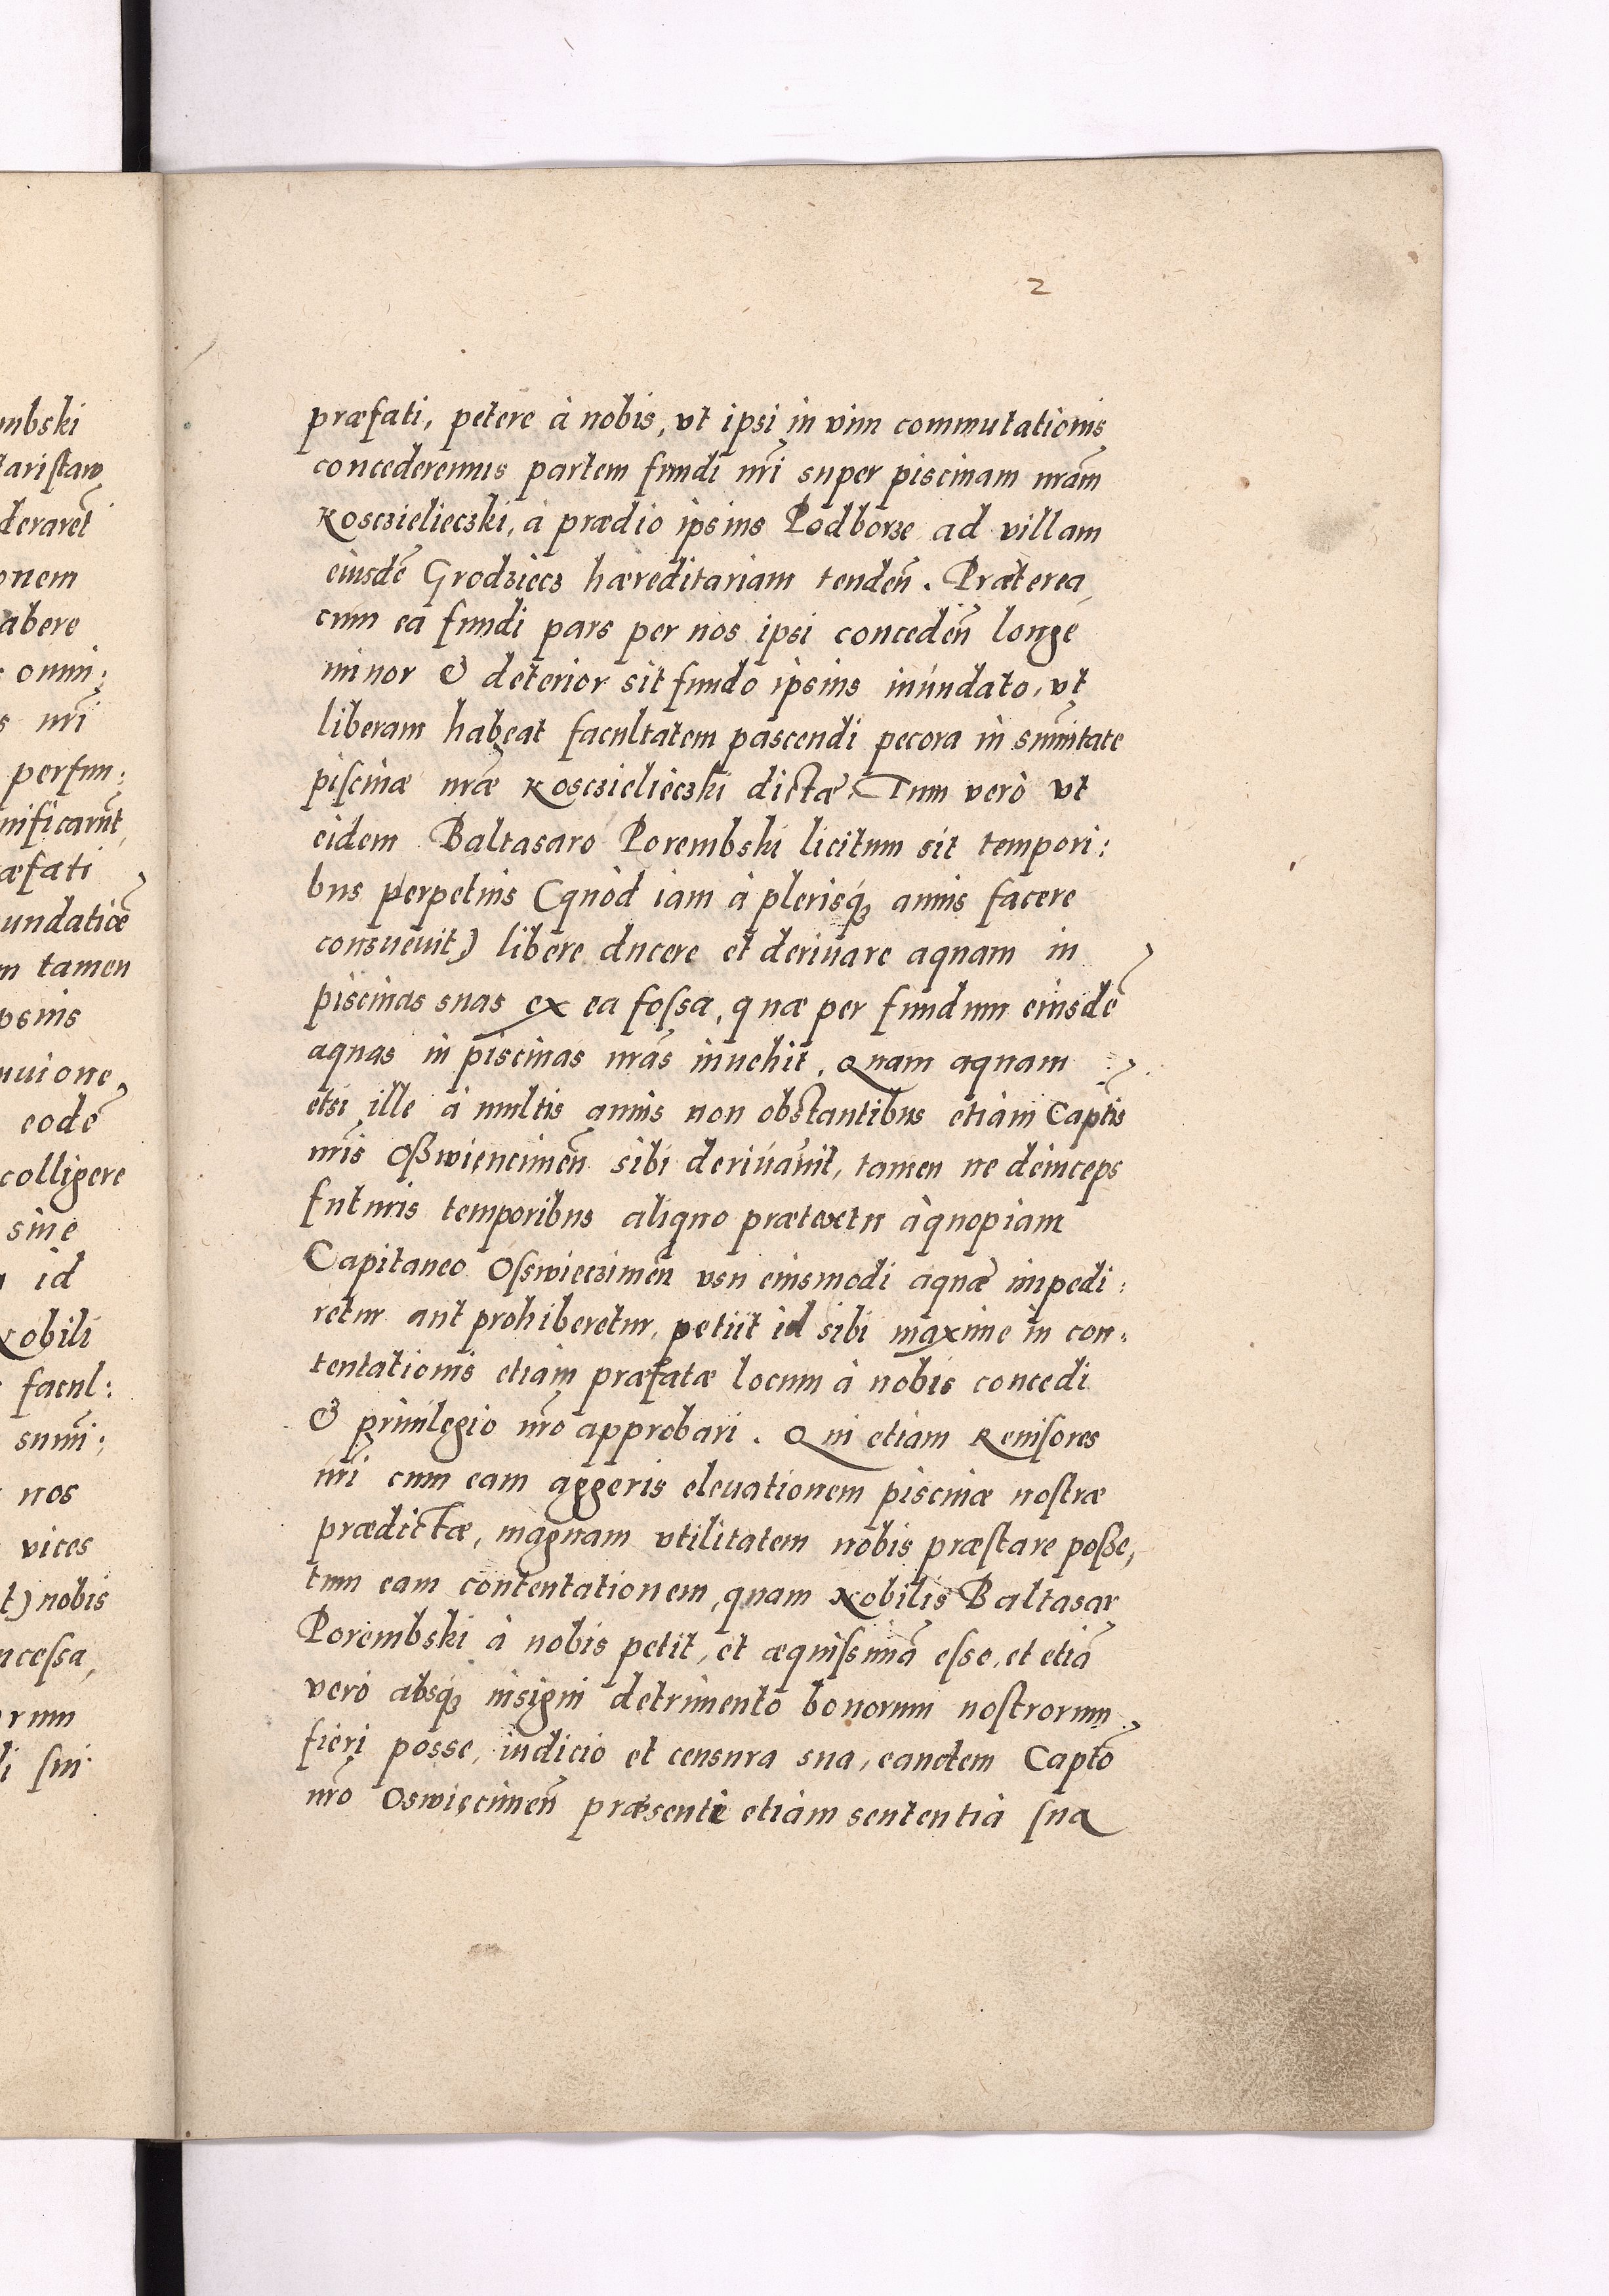 2
præfati, petere à nobis, vt ipsi in vim commutationis
concederemus partem fundi nr̃i super piscinam nr̃am
Kosczielieczki, à prædio ipsius Podborze ad villam
eiusdẽ Grodziecz hæreditariam tendeñ. Præterea,
cum ea fundi pars per nos ipsi concedeñ longe
minor & deterior sit fundo ipsius inundato, vt
liberam habeat facultatem pascendi pecora in sum̃itate
piscinæ nr̃æ Kosczielieczki dictæ. Tum verò vt
eidem Baltasaro Porembski licitum sit tempori:
bus perpetuis (quòd iam à plerisq́ꝫ annis facere
consueuit) libere ducere et deriuare aquam in
piscinas suas ex ea fossa, quæ per fundum eiusdẽ
aquas in piscinas nr̃as inuehit. Quam aquam
etsi ille à multis annis non obstantibus etiam Captis̃
nr̃is Oßwiencimeñ sibi deriuauit, tamen ne deinceps
futuris temporibus aliquo prætextu àquopiam
Capitaneo Osswieczimeñ vsu eiusmodi aquæ impedi:
retur aut prohiberetur, petiit id sibi maxime in con:
tentationis etiam præfatæ locum à nobis concedi
& priuilegio nr̃o approbari. Qui etiam Reuisores
nr̃i cum eam aggeris eleuationem piscinæ nostræ
prædictæ, magnam vtilitatem nobis præstare poße,
tum eam contentationem, quam Nobilis Baltasar
Porembski à nobis petit, et æquissimã esse, et etiã
verò absq́ꝫ insigni detrimento bonorum nostrorum
fieri posse, iudicio et censura sua, eandem Captõ
nr̃o Oswięcimeñ præsente etiam sententia sua
mbski
deraret̃
onem
abere
omni:
s nr̃i
perfun:
nificarunt,
æfati
undatioẽ
m tamen
psius
uuione,
eodẽ
colligere
sine
id
Nobili
facul:
sum̃i:
nos
vices
t) nobis
ncessa,
rum
li sui